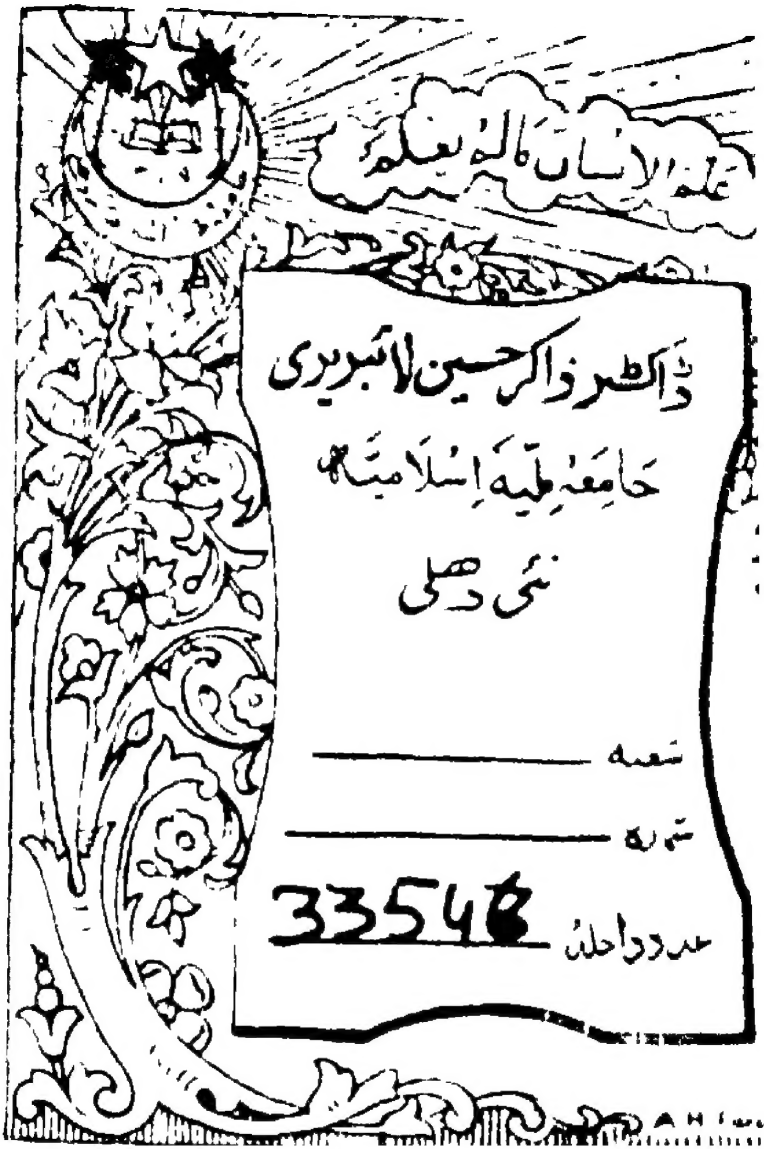 عَلَّمَ الْاِنْسَانَ مَالَمْ يَعْلَمْ
ڈاکٹر ذاکر حسین لائبریری
جَامِعَہ مِلّیَہ اِسْلَامِیَّہ
نئی دھلی
شعبہ
شمارہ
عدد داخلہ
A H